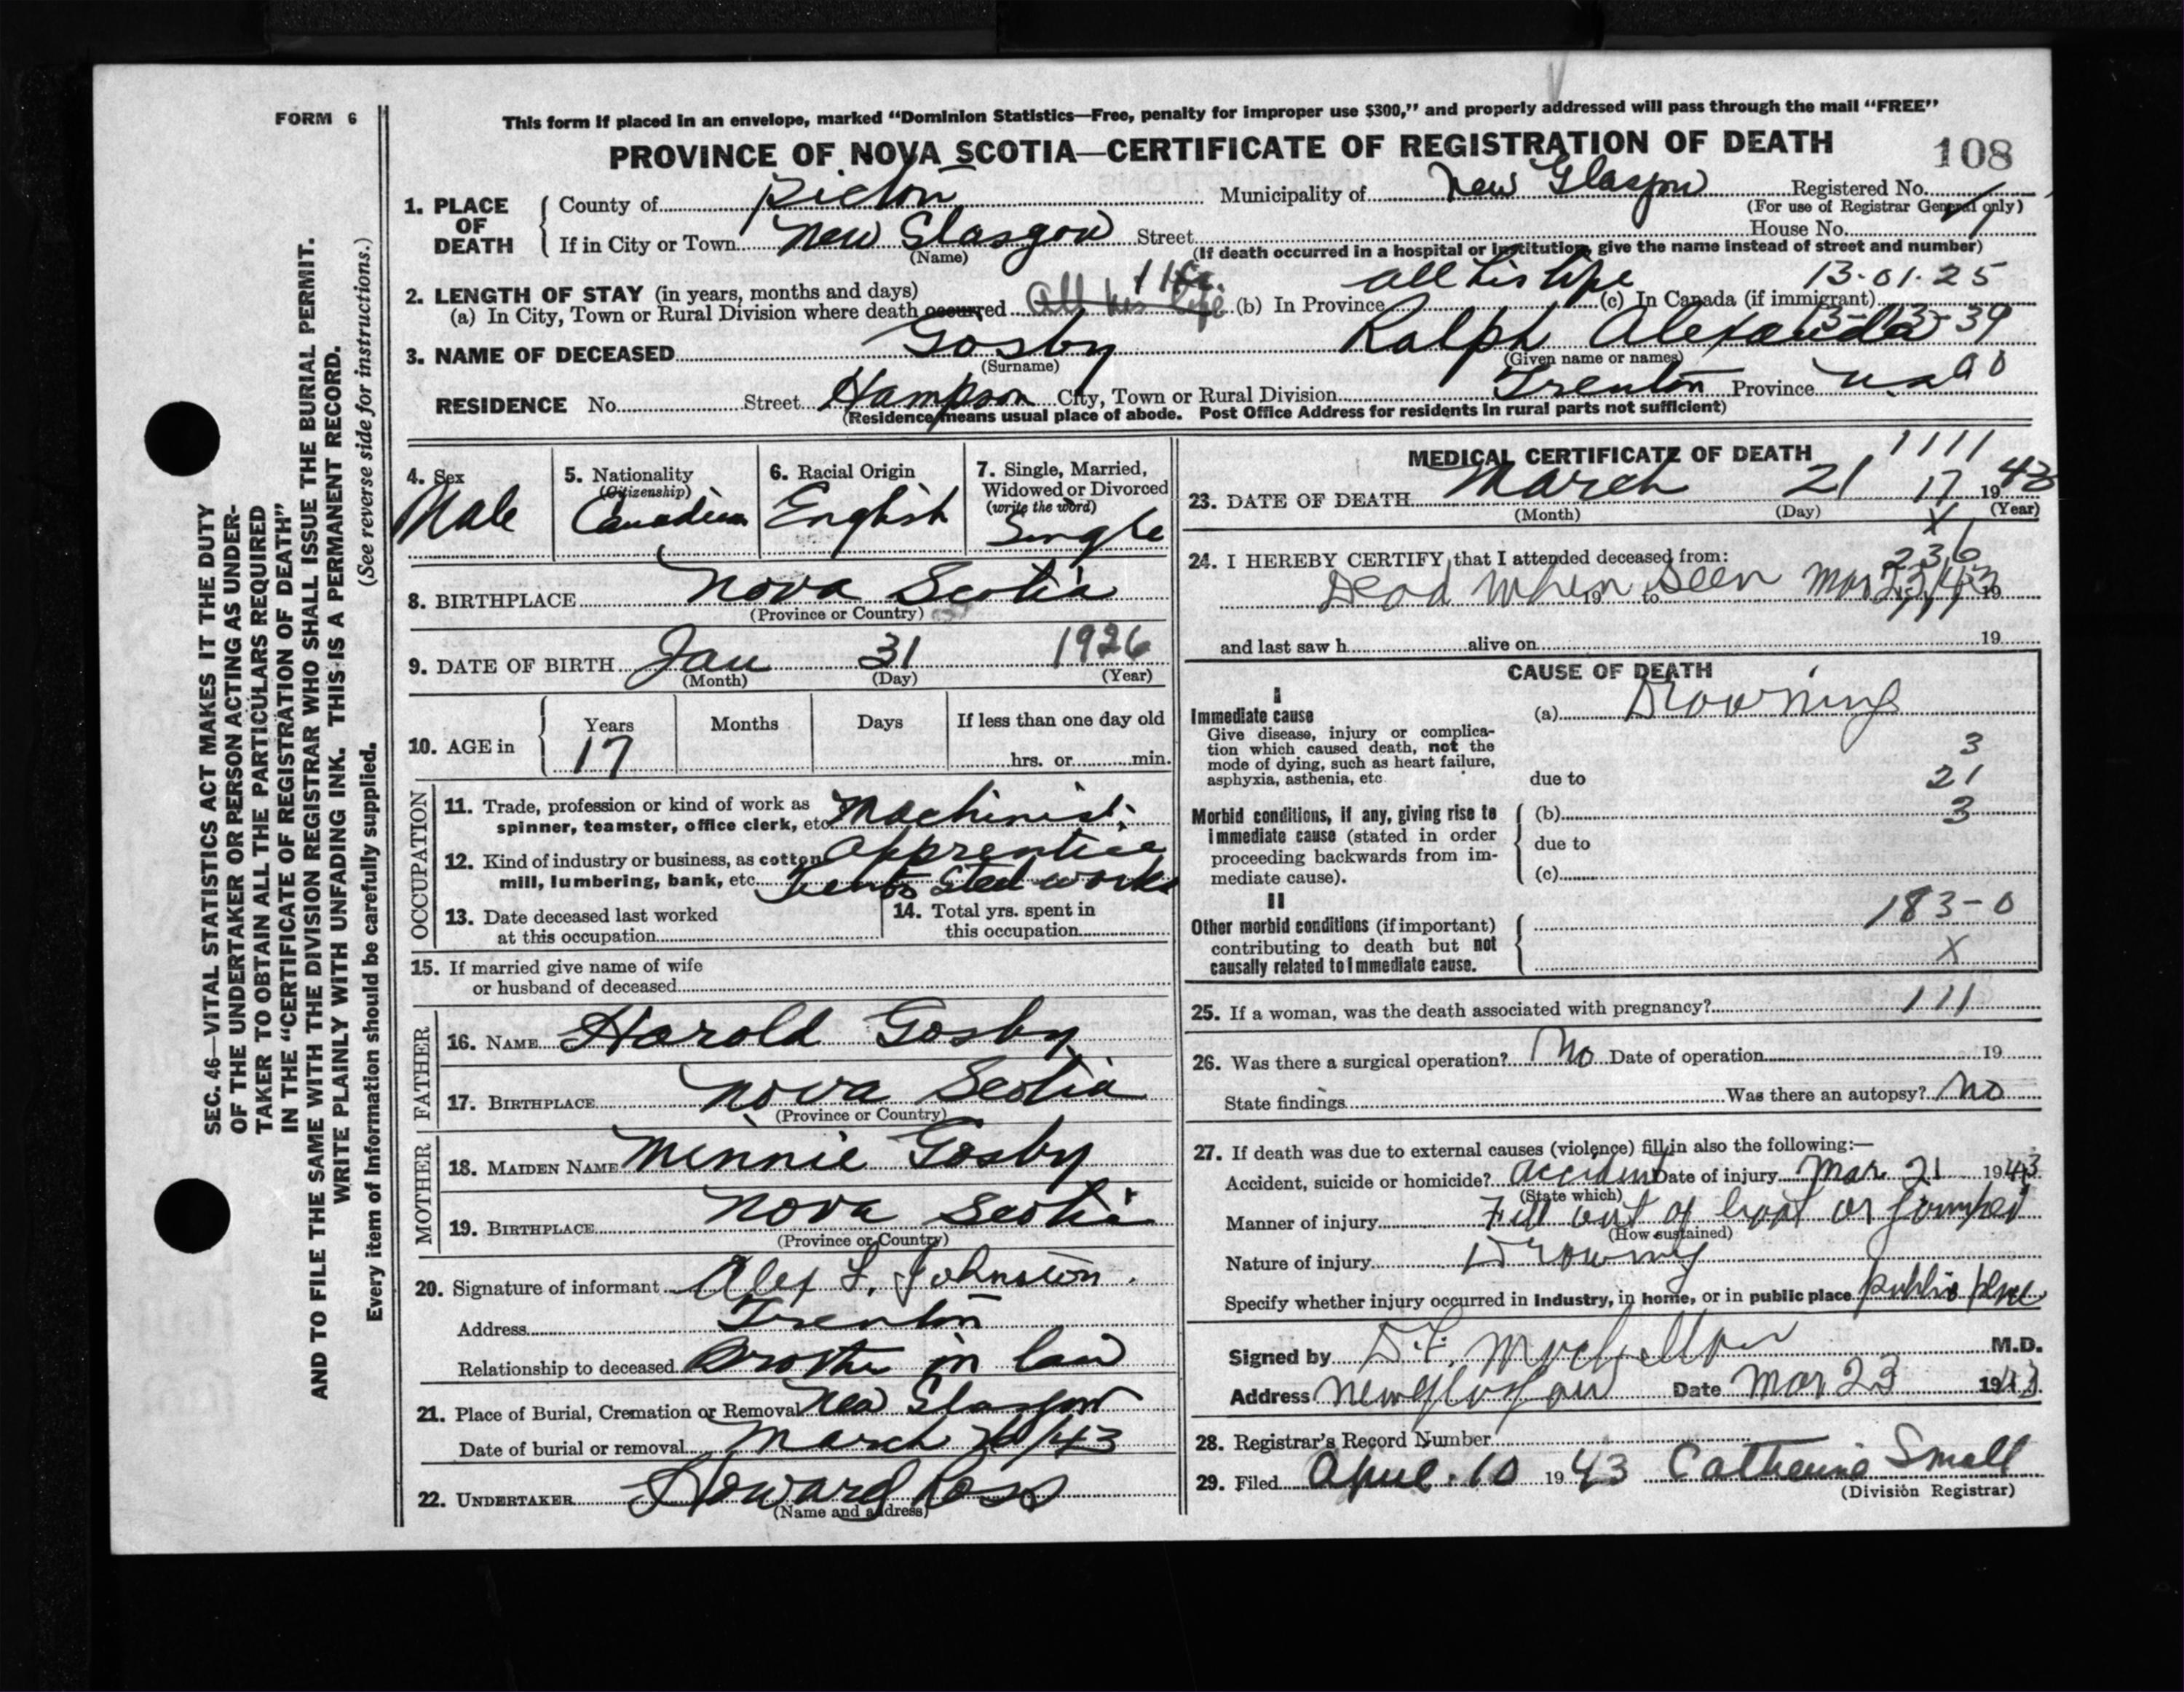 FORM 6
This form if placed in an envelope, marked "Dominion Statistics—Free, penalty for improper use $300," and properly addressed will pass through the mail "FREE"
PROVINCE OF NOVA SCOTIA—CERTIFICATE OF REGISTRATION OF DEATH
108
1. PLACE OF DEATH
County of Pictou Municipality of New Glasgow Registered No.
(For use of Registrar General only)
If in City or Town New Glasgow Street House No.
(Name) (If death occurred in a hospital or institution, give the name instead of street and number)
2. LENGTH OF STAY (in years, months and days)
(a) In City, Town or Rural Division where death occurred All his life (b) In Province all his life (c) In Canada (if immigrant)
13-01-25
3. NAME OF DECEASED Gosby Ralph Alexander
(Surname) (Given name or names)
RESIDENCE No. Street Hampson City, Town or Rural Division Trenton Province n.s.
(Residence means usual place of abode. Post Office Address for residents in rural parts not sufficient)
4. Sex Male
5. Nationality (Citizenship) Canadian
6. Racial Origin English
7. Single, Married, Widowed or Divorced (write the word) Single
8. BIRTHPLACE Nova Scotia
(Province or Country)
9. DATE OF BIRTH Jan 31 1926
(Month) (Day) (Year)
10. AGE in Years 17 Months Days If less than one day old
hrs. or min.
OCCUPATION
11. Trade, profession or kind of work as spinner, teamster, office clerk, etc. Machinist Apprentice
12. Kind of industry or business, as cotton mill, lumbering, bank, etc. Steel works
13. Date deceased last worked at this occupation
14. Total yrs. spent in this occupation
15. If married give name of wife or husband of deceased
FATHER
16. NAME Harold Gosby
17. BIRTHPLACE Nova Scotia
(Province or Country)
MOTHER
18. MAIDEN NAME Minnie Gosby
19. BIRTHPLACE Nova Scotia
(Province or Country)
20. Signature of informant Alex L. Johnston
Address Trenton
Relationship to deceased Brother in law
21. Place of Burial, Cremation or Removal New Glasgow
Date of burial or removal March /43
22. UNDERTAKER Howard Ross
(Name and address)
MEDICAL CERTIFICATE OF DEATH
1111
23. DATE OF DEATH March 21 1943
17
(Month) (Day) (Year)
X
24. I HEREBY CERTIFY that I attended deceased from:
236
Dead when seen Mar 23/43
19 to 19
and last saw h alive on 19
CAUSE OF DEATH
I
Immediate cause
Give disease, injury or complication which caused death, not the mode of dying, such as heart failure, asphyxia, asthenia, etc.
(a) Drowning
3
due to 21
Morbid conditions, if any, giving rise to immediate cause (stated in order proceeding backwards from immediate cause).
(b) 3
due to
(c)
II
Other morbid conditions (if important) contributing to death but not causally related to immediate cause.
183-0
X
25. If a woman, was the death associated with pregnancy? 111
26. Was there a surgical operation? No Date of operation 19
State findings Was there an autopsy? No
27. If death was due to external causes (violence) fill in also the following:—
Accident, suicide or homicide? accident Date of injury Mar 21 1943
(State which)
Manner of injury Fell out of boat or jumped
(How sustained)
Nature of injury Drowning
Specify whether injury occurred in industry, in home, or in public place public place
Signed by D.F. M.D.
Address New Glasgow Date Mar 23 1943
28. Registrar's Record Number
29. Filed April 10 1943 Catherine Small
(Division Registrar)
SEC. 46—VITAL STATISTICS ACT MAKES IT THE DUTY
OF THE UNDERTAKER OR PERSON ACTING AS UNDER-
TAKER TO OBTAIN ALL THE PARTICULARS REQUIRED
IN THE "CERTIFICATE OF REGISTRATION OF DEATH"
AND TO FILE THE SAME WITH THE DIVISION REGISTRAR WHO SHALL ISSUE THE BURIAL PERMIT.
WRITE PLAINLY WITH UNFADING INK. THIS IS A PERMANENT RECORD.
(See reverse side for instructions.)
Every item of information should be carefully supplied.